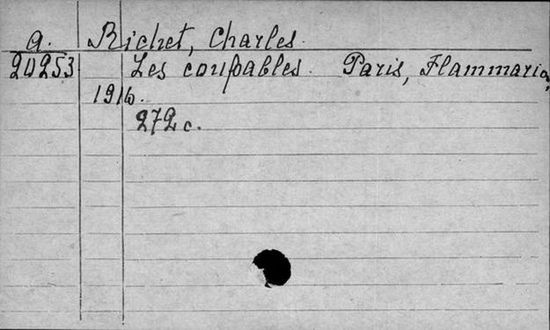 a. Richet, Charles.
20253 Les coupables. Paris, Flammarion,
1916.
272 c.